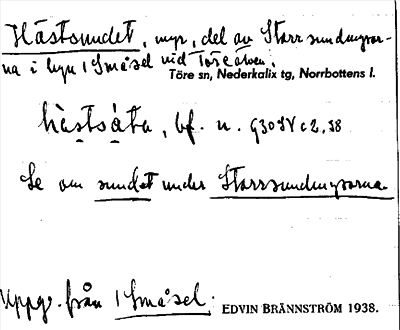 Hästsundet, myr, del av Storrsundmyrar-
na i byn 1 Småsel vid Töreälven.
Töre sn, Nederkalix tg, Norrbottens l.
hàstsáta, bf. n. 930 SV c 2, 38
Se om sundet under Storrsundmyrarna.
Uppg. från 1 Småsel.
EDVIN BRÄNNSTRÖM 1938.